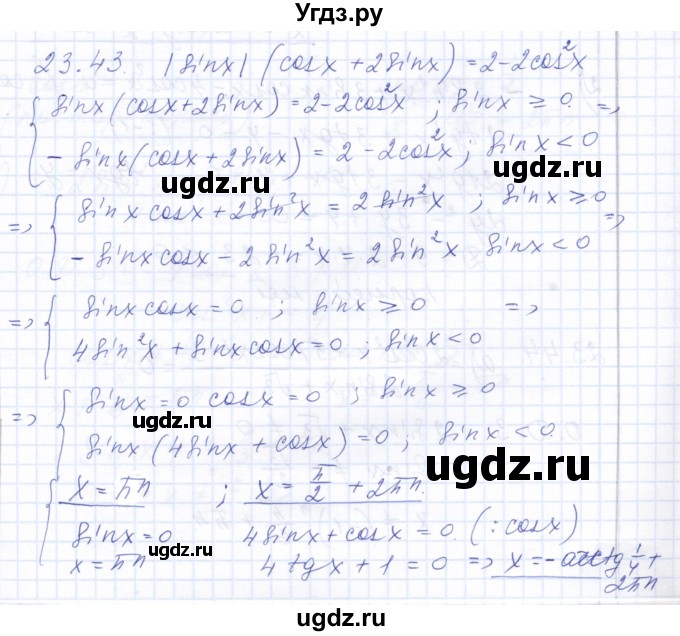 Угдз.ру
23.43. |sinx| (cosx + 2sinx) = 2 - 2cos²x
{ sinx(cosx + 2sinx) = 2 - 2cos²x ; sinx ≥ 0 =>
- sinx(cosx + 2sinx) = 2 - 2cos²x ; sinx < 0
ugdz.ru ugdz.ru
=> { sinx cosx + 2sin²x = 2sin²x ; sinx ≥ 0 =>
- sinx cosx - 2sin²x = 2sin²x sinx < 0
=> { sinx cosx = 0 ; sinx ≥ 0 =>
4sin²x + sinx cosx = 0 ; sinx < 0
=> { sinx = 0 cosx = 0 ; sinx ≥ 0
ugdz.ru
sinx (4sinx + cosx) = 0 ; sinx < 0.
ugdz.ru
{ x = πn ; x = π/2 + 2πn.
ugdz.ru
sinx = 0 4sinx + cosx = 0. (: cosx)
ugdz.ru
x = πn 4tgx + 1 = 0 => x = -arctg 1/4 +
2πn
ugdz.ru ugdz.ru